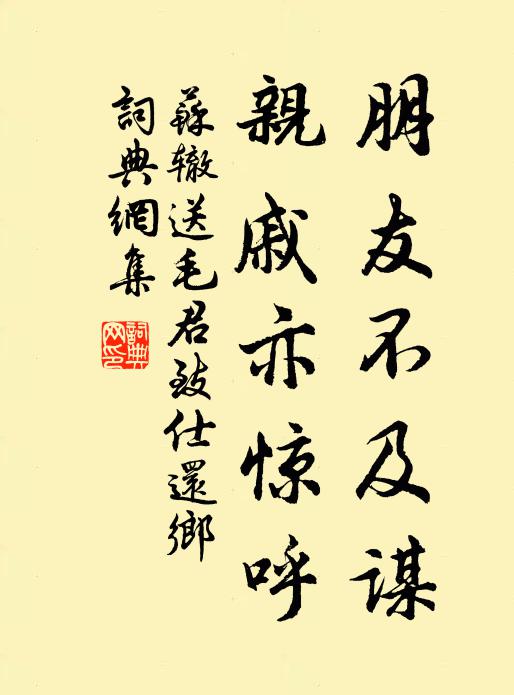 朋友不及谋
親戚亦惊呼
蘇辙送毛君致仕還鄉
詞典網集
詞典网印